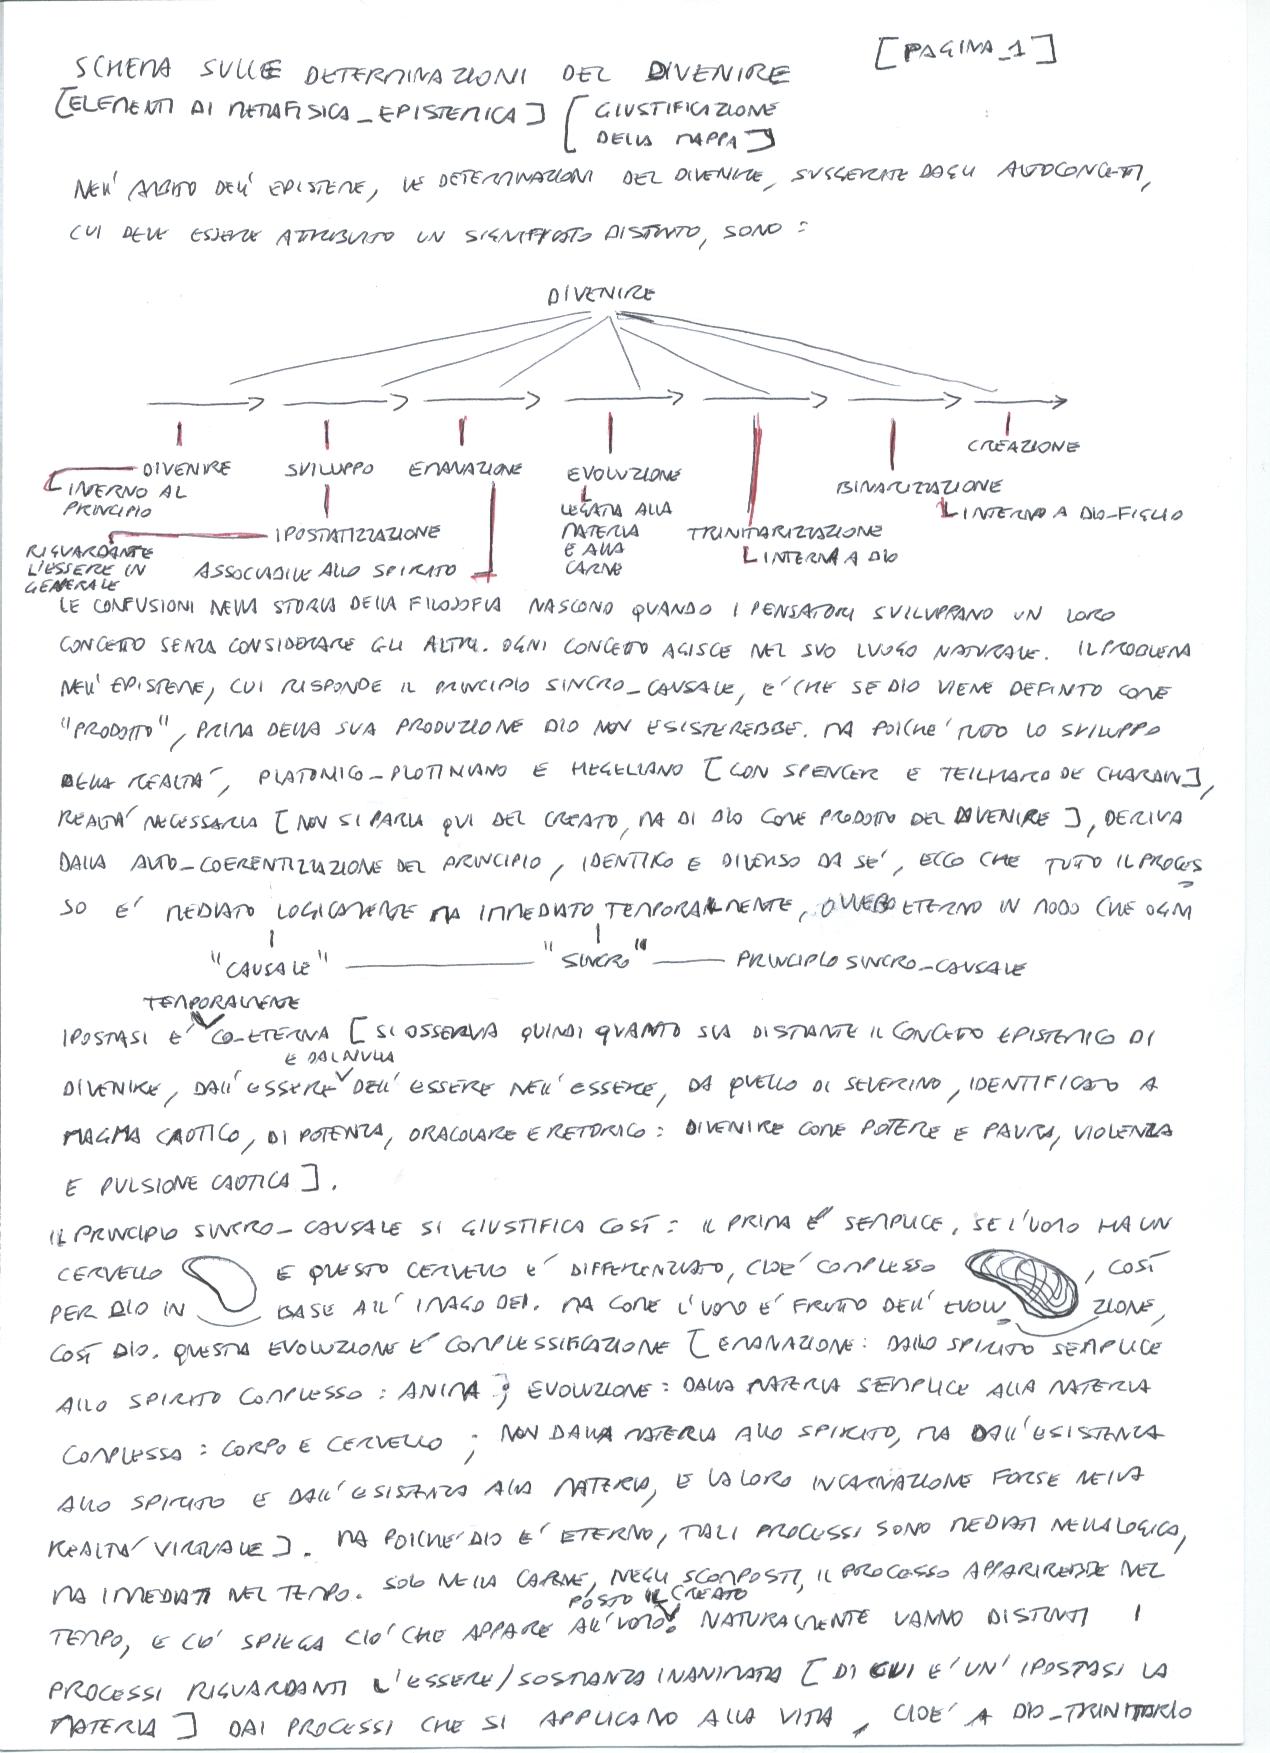 [PAGINA_1]
SCHEMA SULLE DETERMINAZIONI DEL DIVENIRE
[ELEMENTI DI METAFISICA_EPISTEMICA] [GIUSTIFICAZIONE
DELLA MAPPA]
NELL'AMBITO DELL'EPISTEME, LE DETERMINAZIONI DEL DIVENIRE, SUGGERITE DAGLI AUTOCONCETTI,
CUI DEVE ESSERE ATTRIBUITO UN SIGNIFICATO DISTINTO, SONO:
DIVENIRE
CREAZIONE
DIVENIRE SVILUPPO EMANAZIONE EVOLUZIONE
INTERNO AL
PRINCIPIO
BINARIZZAZIONE
INTERNO A DIO-FIGLIO
LEGATA ALLA
MATERIA
E ALLA
CARNE
TRINITARIZZAZIONE
INTERNA A DIO
IPOSTATIZZAZIONE
RIGUARDANTE
L'ESSERE IN
GENERALE
ASSOCIABILE ALLO SPIRITO
LE CONFUSIONI NELLA STORIA DELLA FILOSOFIA NASCONO QUANDO I PENSATORI SVILUPPANO UN LORO
CONCETTO SENZA CONSIDERARE GLI ALTRI. OGNI CONCETTO AGISCE NEL SUO LUOGO NATURALE. IL PROBLEMA
NELL'EPISTEME, CUI RISPONDE IL PRINCIPIO SINCRO_CAUSALE, E' CHE SE DIO VIENE DEFINITO COME
"PRODOTTO", PRIMA DELLA SUA PRODUZIONE DIO NON ESISTEREBBE. MA POICHE' TUTTO LO SVILUPPO
DELLA REALTA', PLATONICO-PLOTINIANO E HEGELIANO [CON SPENCER E TEILHARD DE CHARDIN],
REALTA' NECESSARIA [NON SI PARLA QUI DEL CREATO, MA DI DIO COME PRODOTTO DEL DIVENIRE], DERIVA
DALLA AUTO-COERENTIZZAZIONE DEL PRINCIPIO, IDENTICO E DIVERSO DA SE', ECCO CHE TUTTO IL PROCES
SO E' MEDIATO LOGICAMENTE MA IMMEDIATO TEMPORALMENTE, OVVERO ETERNO IN MODO CHE OGNI
"CAUSALE" "SINCRO" PRINCIPIO SINCRO_CAUSALE
TEMPORALMENTE
IPOSTASI E' CO-ETERNA [SI OSSERVA QUINDI QUANTO SIA DISTANTE IL CONCETTO EPISTEMICO DI
E DAL NULLA
DIVENIRE, DALL'ESSERE DELL'ESSERE NELL'ESSERE, DA QUELLO DI SEVERINO, IDENTIFICATO A
MAGMA CAOTICO, DI POTENZA, ORACOLARE E RETORICO: DIVENIRE COME POTERE E PAURA, VIOLENZA
E PULSIONE CAOTICA].
IL PRINCIPIO SINCRO_CAUSALE SI GIUSTIFICA COSÌ: IL PRIMA E' SEMPLICE. SE L'UOMO HA UN
CERVELLO E QUESTO CERVELLO E' DIFFERENZIATO, CIOE' COMPLESSO, COSÌ
PER DIO IN BASE ALL'IMAGO DEI. MA COME L'UOMO E' FRUTTO DELL'EVOLUZIONE,
COSÌ DIO. QUESTA EVOLUZIONE E' COMPLESSIFICAZIONE [EMANAZIONE: DALLO SPIRITO SEMPLICE
ALLO SPIRITO COMPLESSO: ANIMA; EVOLUZIONE: DALLA MATERIA SEMPLICE ALLA MATERIA
COMPLESSA: CORPO E CERVELLO; NON DALLA MATERIA ALLO SPIRITO, MA DALL'ESISTENZA
ALLO SPIRITO E DALL'ESISTENZA ALLA MATERIA, E LA LORO INCARNAZIONE FORSE NELLA
REALTA' VIRTUALE]. MA POICHE' DIO E' ETERNO, TALI PROCESSI SONO MEDIATI NELLA LOGICA,
MA IMMEDIATI NEL TEMPO. SOLO NELLA CARNE, NEGLI SCOMPOSTI, IL PROCESSO APPARIREBBE NEL
POSTO IL CREATO
TEMPO, E CIO' SPIEGA CIO' CHE APPARE ALL'UOMO. NATURALMENTE VANNO DISTINTI I
PROCESSI RIGUARDANTI L'ESSERE/SOSTANZA INANIMATA [DI CUI E' UN'IPOSTASI LA
MATERIA] DAI PROCESSI CHE SI APPLICANO ALLA VITA, CIOE' A DIO-TRINITARIO